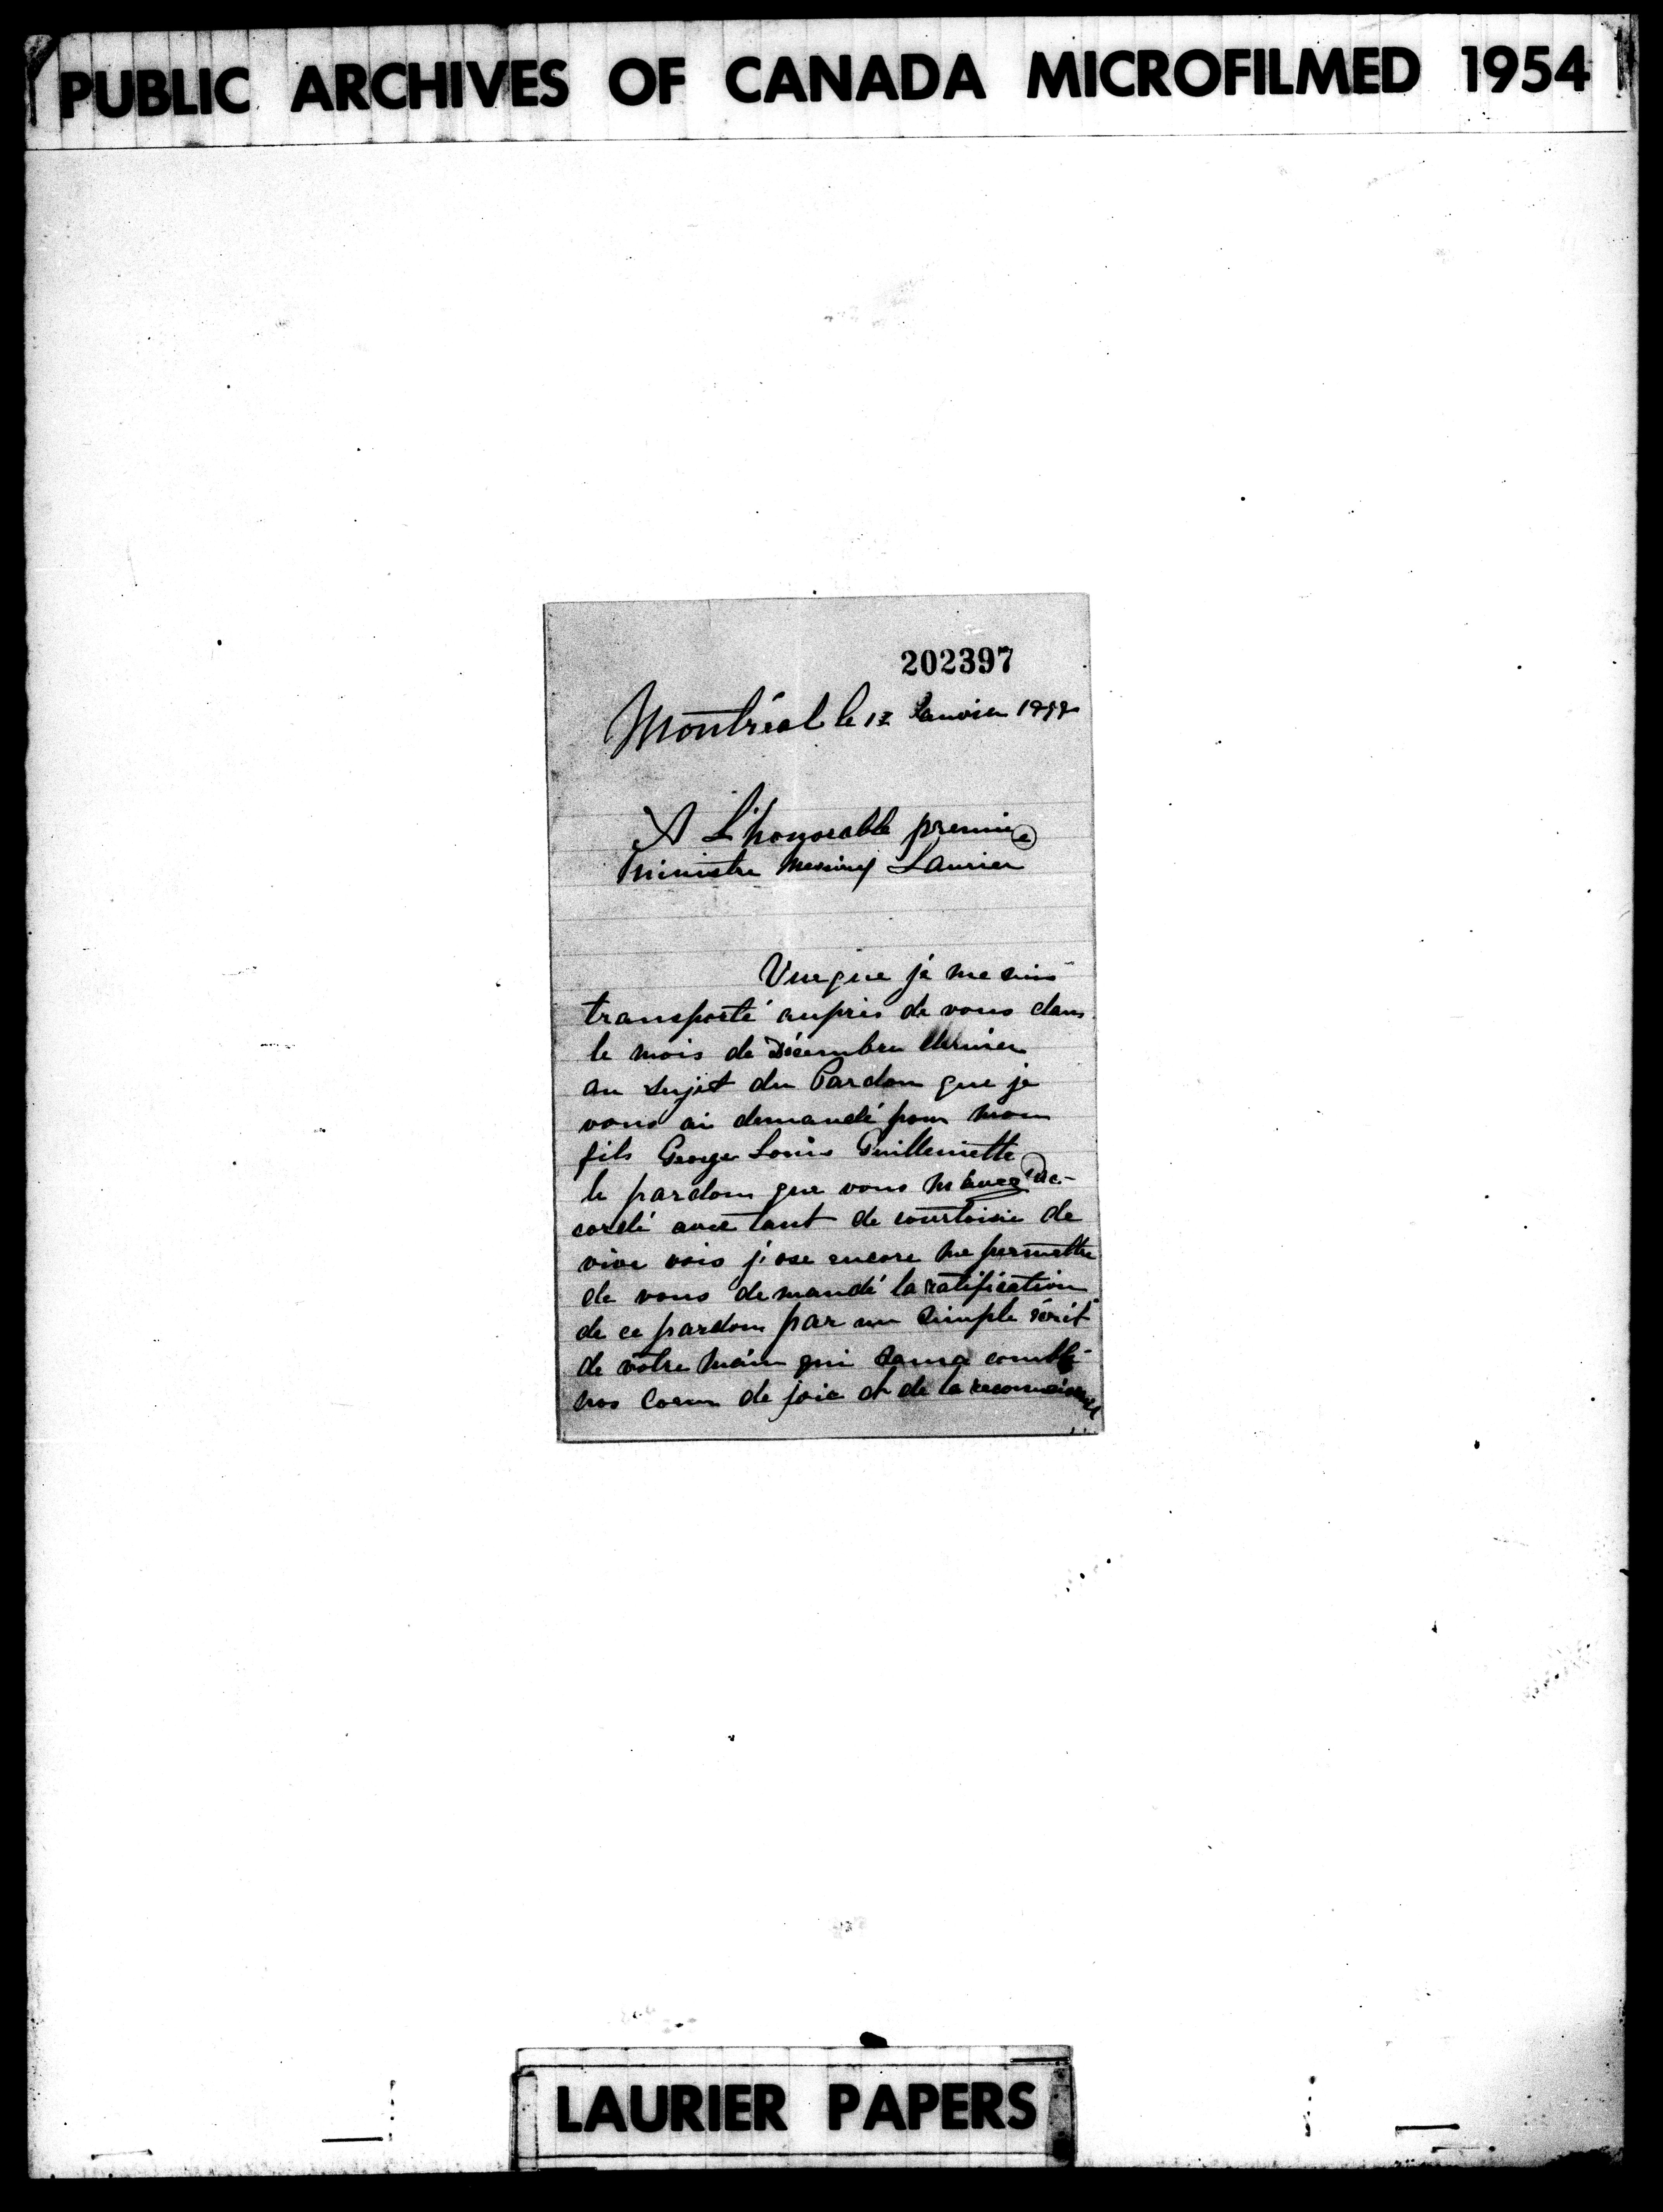 PUBLIC ARCHIVES OF CANADA MICROFILMED 1954
202397
Montréal le 12 Janvier
A L'honorable premie
Ministre Laurier
Vue que je me suis
transporté aupris de vous dans
le mois de Décembre dernier
au sujet du Pardon que je
vous ai demandé pour mon
fils George Louis Guillemette
le pardon que vous m'avez ac-
cordé avec tant de courtoisie de
vive vois j'ose encore me permettre
de vous demandé la ratification
de ce pardon par un simple écrit
de votre main qui saura comblé
nos Coeur de joie et de la reconnaissance
LAURIER PAPERS